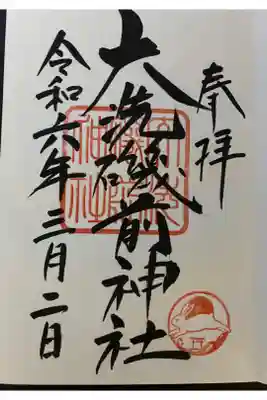 奉拝
大洗磯前神社
令和六年三月二日